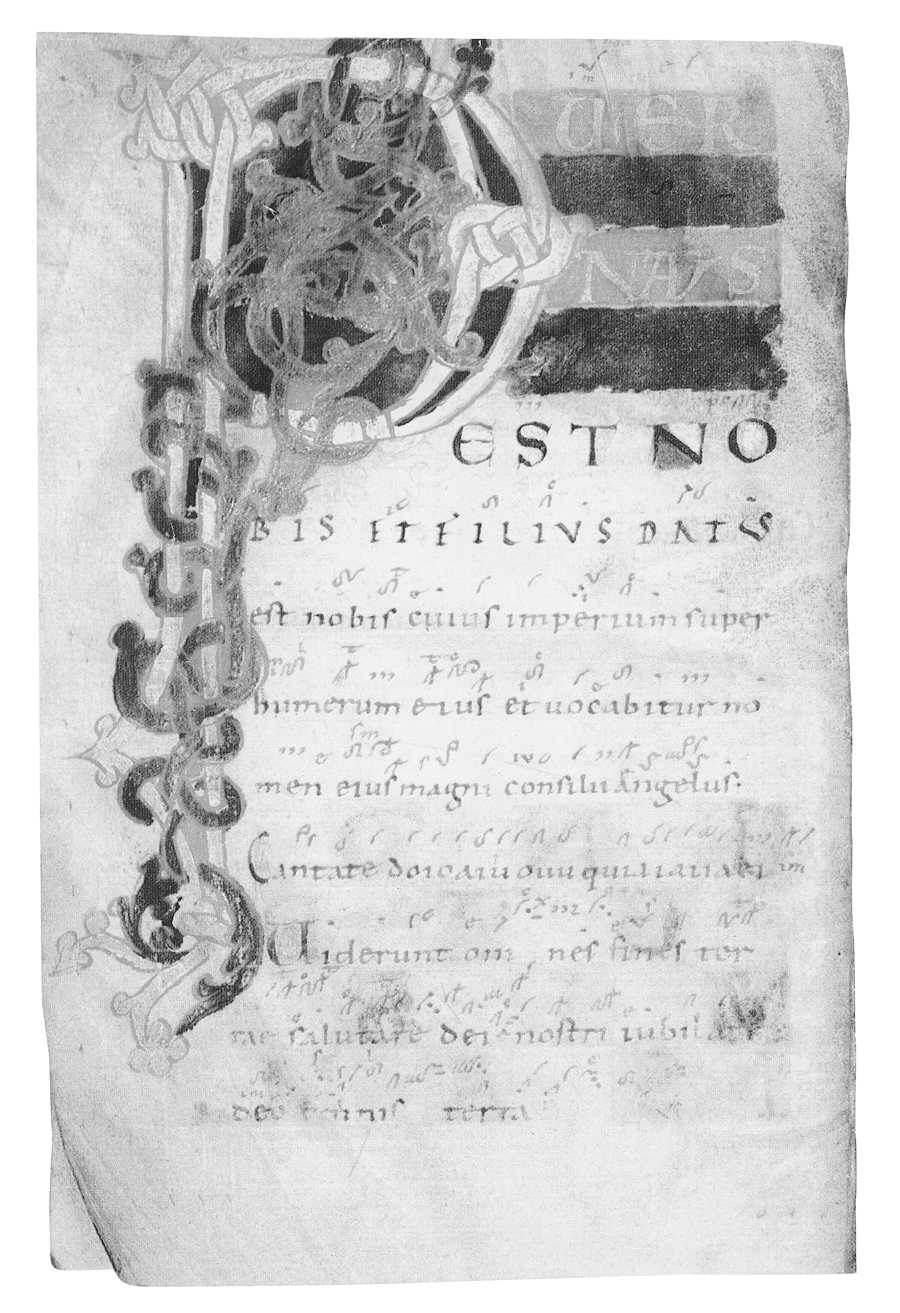 PUER
NATUS
EST NO
BIS ET FILIVS DATUS
est nobis cuius imperium super
humerum eius et uocabitur no
men eius magni consilii angelus.
Cantate
Uiderunt om nes fines ter
rae salutare dei nostri iubilate
deo omnis terra